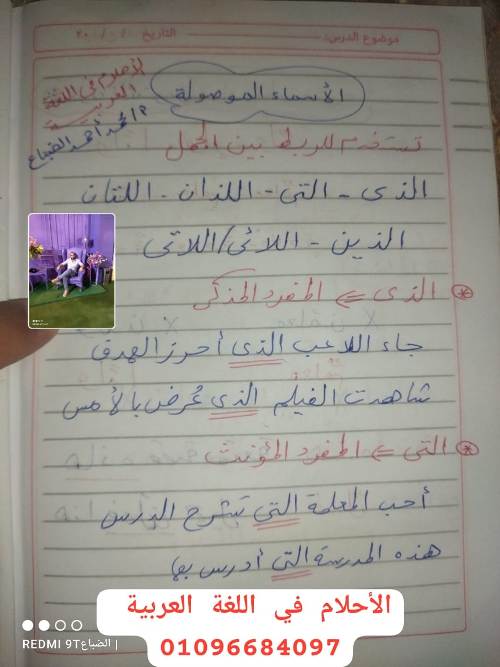 موضوع الدرس: التاريخ / / ٢٠
الأحلام في اللغة
العربية
أ/ محمد أحمد الضباع
الأسماء الموصولة
تستخدم للربط بين الجمل
الذى - التى - اللذان - اللتان
الذين - اللائى/اللاتى
الذى ⇐ المفرد المذكر
جاء اللاعب الذى أحرز الهدف
شاهدت الفيلم الذى عُرض بالأمس
التى ⇐ المفرد المؤنث
أحب المعلمة التى تشرح الدرس
هذه المدرسة التى أدرس بها
الأحلام في اللغة العربية
01096684097
REDMI 9T | الضباع